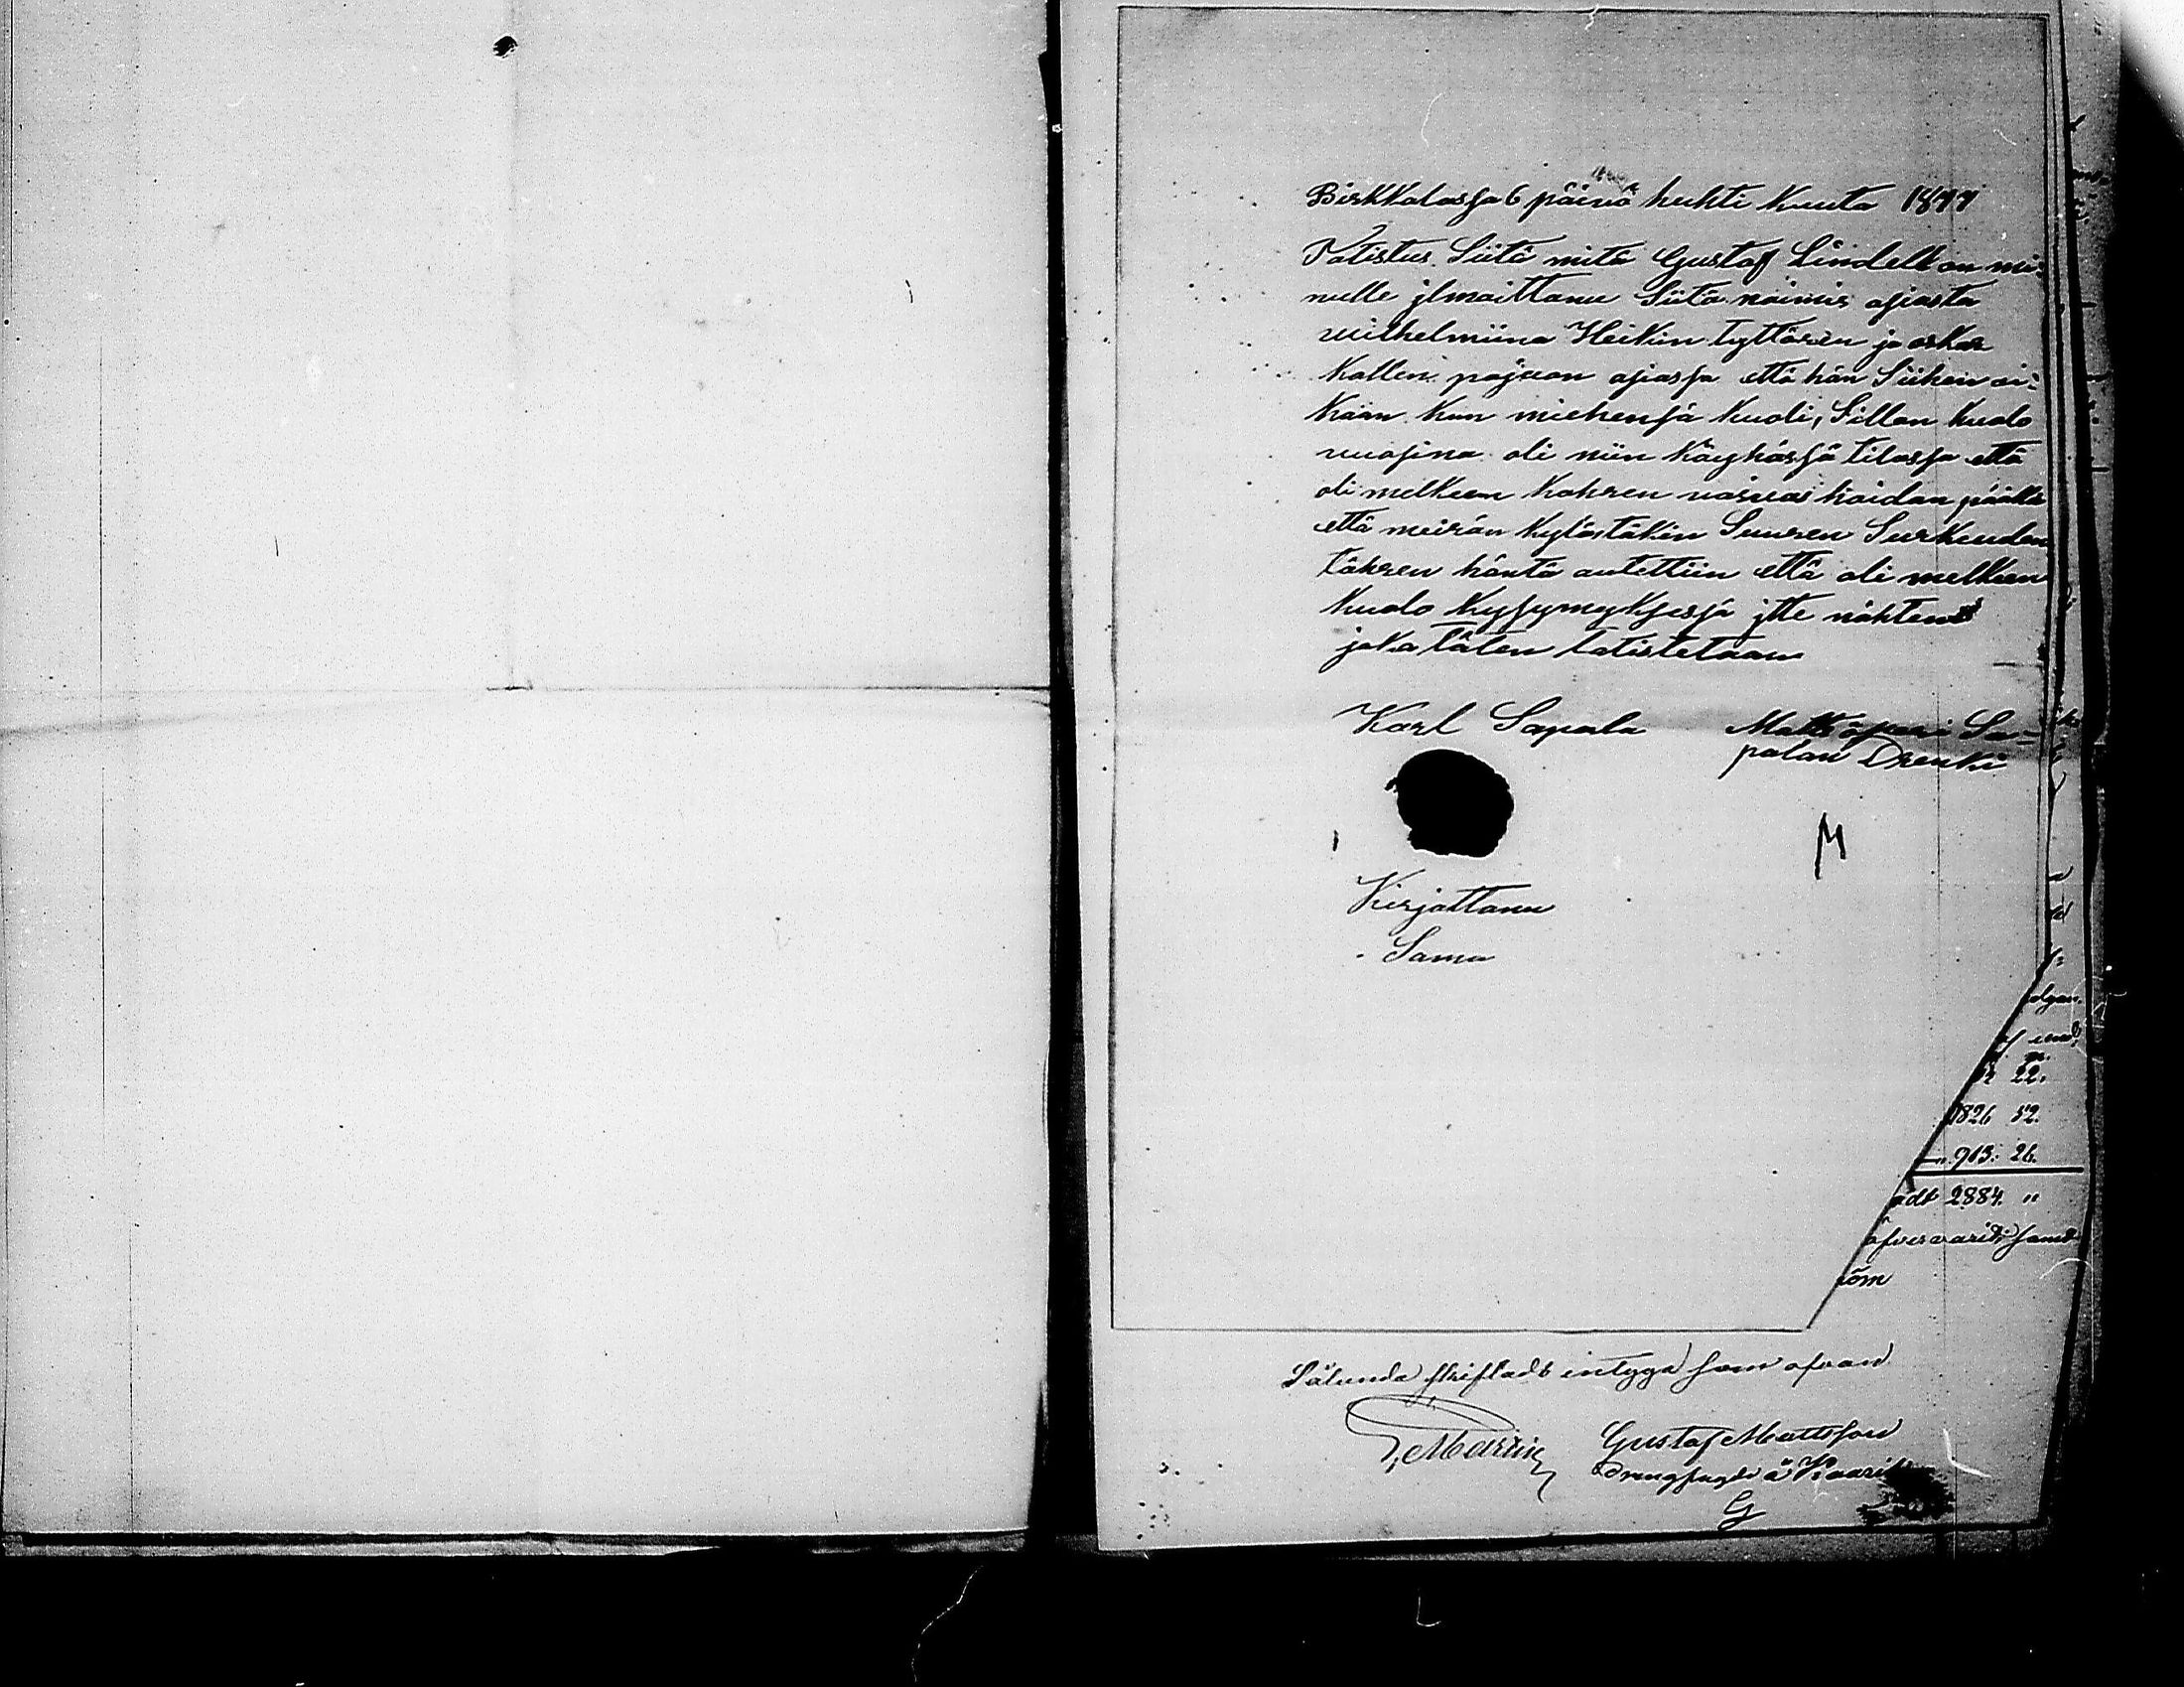 Birkkalassa 6 päivä huhti kuuta 1877
Totistus Siitä mitä Gustaf Lindell on mi-
nulle jlmoittanu Siitä naimis asiasta
wilhelmiina Heikin tyttären ja oskar
Kallen pojaan asiassa että hän Siihen ai-
kaan kun miehensä kuoli, Sillan kuolo
vuosina oli niin köyhässä tilassa että
oli melkeen kahren vaivas hoidan päällä
että meirän kylästäkin Suuren Surkeuden
tähren häntä autettiin että oli melkeen
kuolo kysymyksessä jtte nähtenä
joka täten totistetaan
Karl Sapala
Matt Sa-
palan Drenki
Kirjattanu
Sama
M
edt 2884. "
1826 52.
913. 26.
22.
öm
Sålunda skiftadt intyga som ofvan
Gustaf Mattsson
G